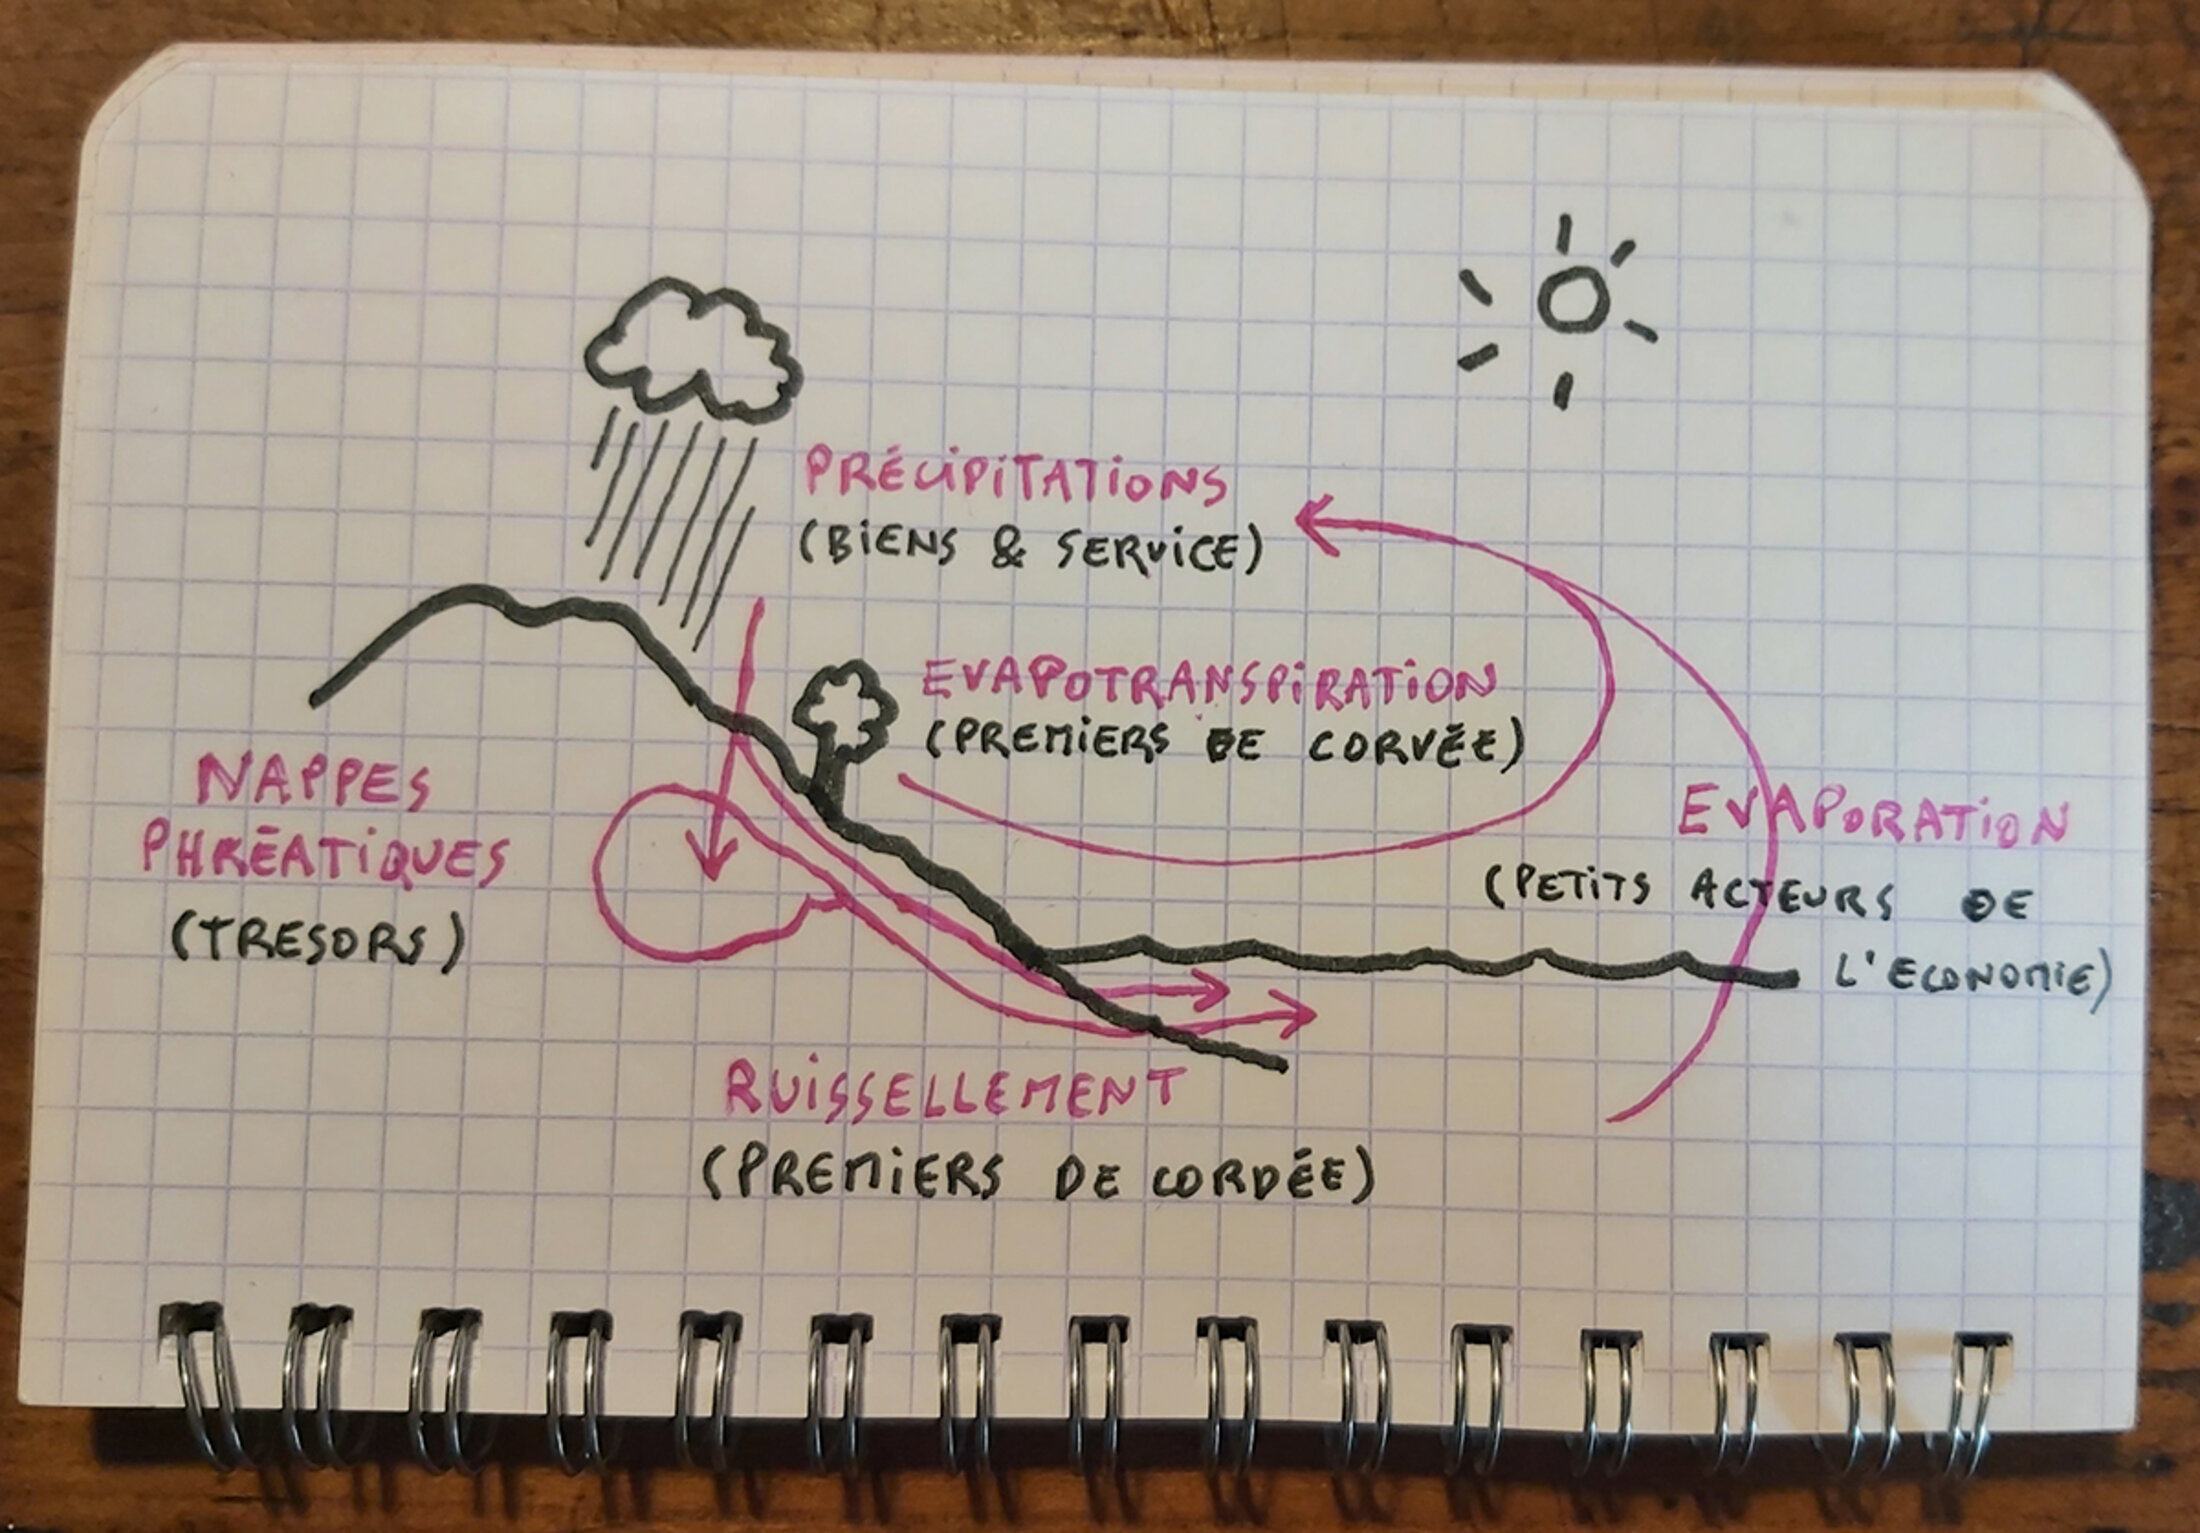 PRÉCIPITATIONS
(BIENS & SERVICE)
EVAPOTRANSPIRATION
(PREMIERS DE CORVÉE)
NAPPES
PHRÉATIQUES
(TRESORS)
EVAPORATION
(PETITS ACTEURS DE
L'ECONOMIE)
RUISSELLEMENT
(PREMIERS DE CORDÉE)